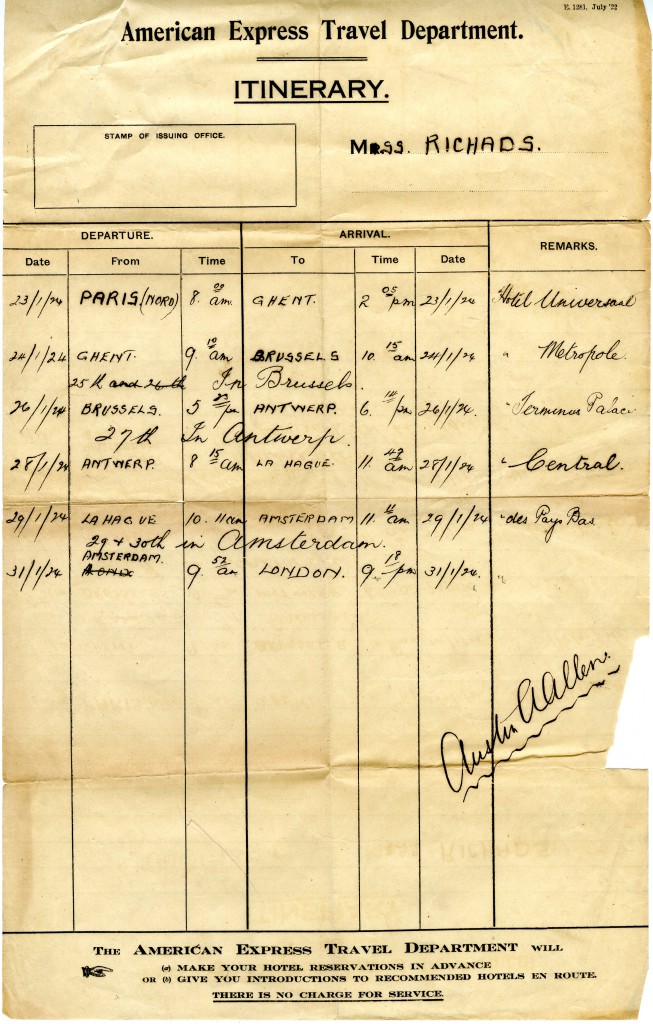 E. 1281. July '22
American Express Travel Department.
ITINERARY.
STAMP OF ISSUING OFFICE.
MISS. RICHADS.
DEPARTURE. ARRIVAL. REMARKS.
Date From Time To Time Date
23/1/24 PARIS (NORD) 8. 00 am. GHENT. 2 05 pm 23/1/24 Hotel Universal
24/1/24 GHENT. 9. 10 am BRUSSELS 10. 15 am 24/1/24 " Metropole.
25th and 26th In Brussels.
26/1/24 BRUSSELS. 5 pm ANTWERP. 6. pm 26/1/24. " Terminus Palace
27th In Antwerp.
28/1/24 ANTWERP. 8 15 am LA HAGUE. 11. 49 am 28/1/24 " Central.
29/1/24 LA HAGUE 10. 11 am AMSTERDAM 11. 11 am 29/1/24 " des Pays Bas
29 + 30th in Amsterdam.
AMSTERDAM.
31/1/24 9. 52 am LONDON. 9 18 pm 31/1/24. "
Austin A Allen.
THE AMERICAN EXPRESS TRAVEL DEPARTMENT WILL
(a) MAKE YOUR HOTEL RESERVATIONS IN ADVANCE
OR (b) GIVE YOU INTRODUCTIONS TO RECOMMENDED HOTELS EN ROUTE.
THERE IS NO CHARGE FOR SERVICE.